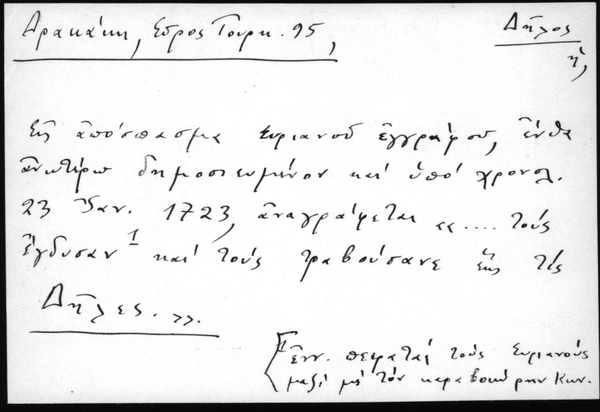 Δρακάκη, Σῦρος Τουρκ. 95,
Δῆλος
ἡ,
Εἰς ἀπόσπασμα Συριανοῦ ἐγγράφου, ἔνθα
ἀνωτέρω δημοσιευμένον καί ὑπό χρονολ.
23 Ἰαν. 1723, ἀναγράφεται «.... τούς
ἔγδυσαν 1 καί τούς τραβούσανε εἰς τές
Δῆλες.»
1 ἐνν. πειραταί τούς Συριανούς
μαζί μέ τόν καραβοκύρην Κων.